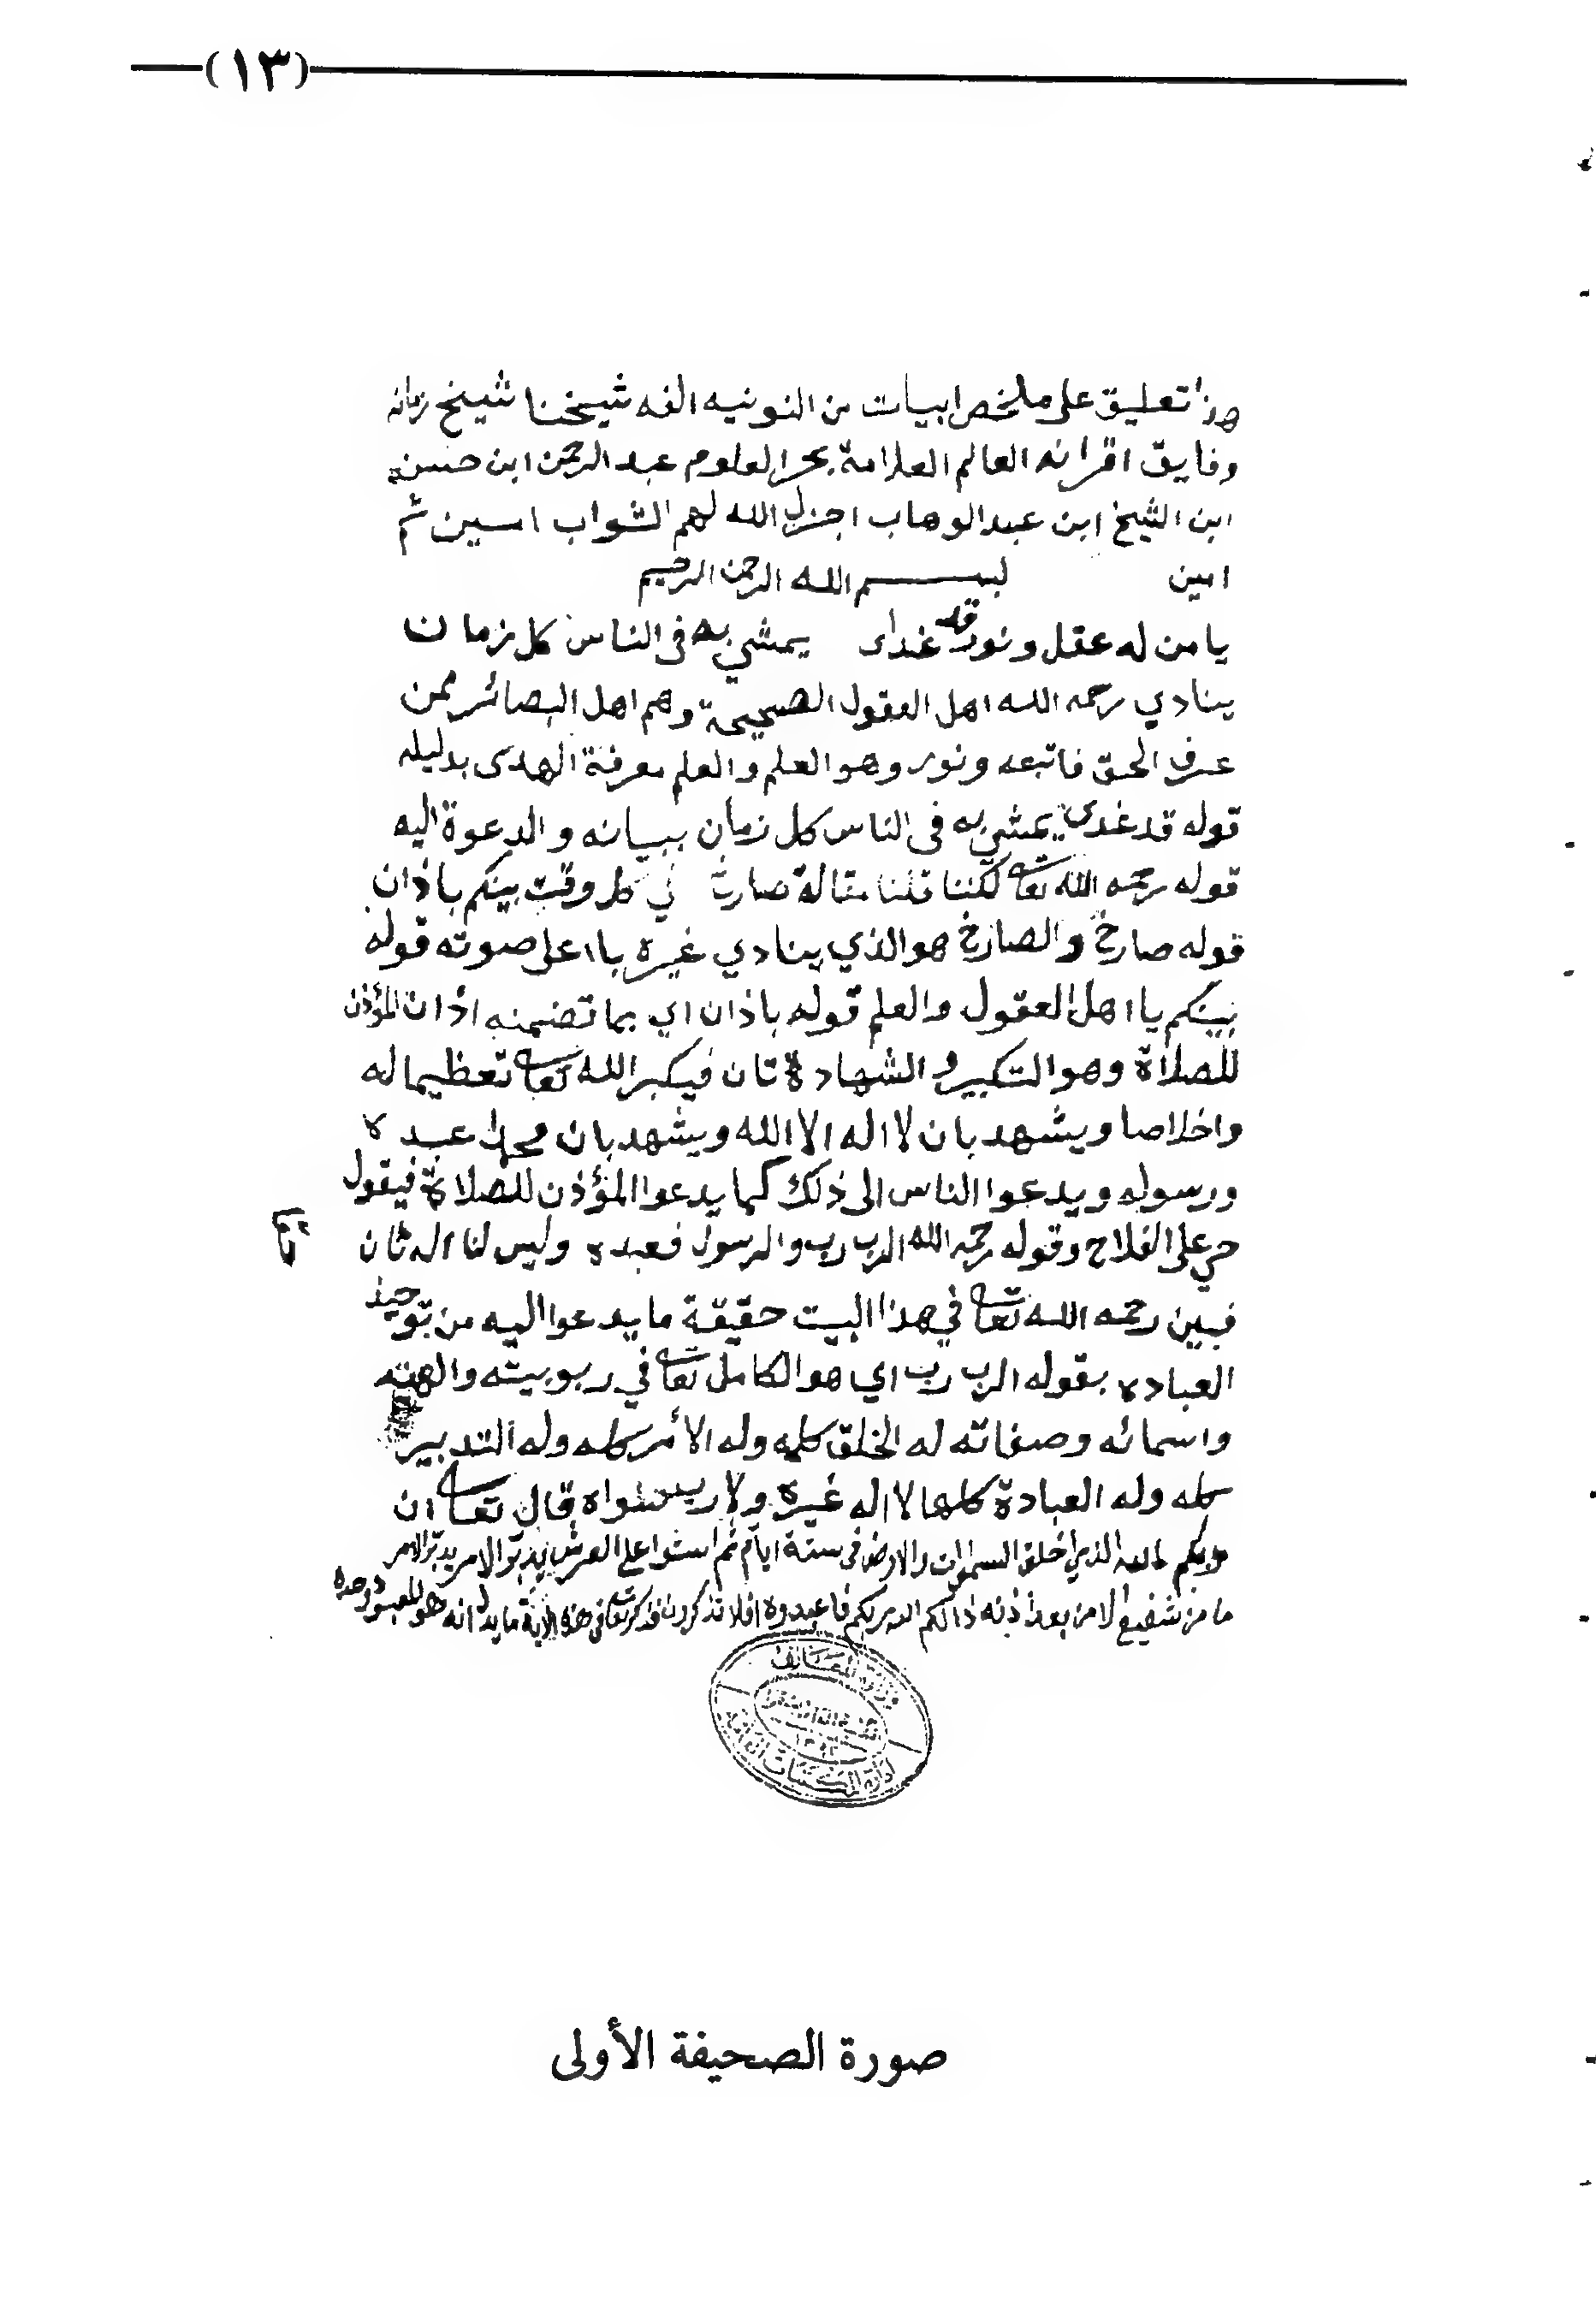 (١٣)
هذا تعليق على ملخص ابيات من النونيه الفه شيخنا شيخ زمانه
وفايق اقرانه العالم العلامة بحر العلوم عبد الرحمن ابن حسن
ابن الشيخ ابن عبد الوهاب اجزل الله لهم الثواب امين ثم
امين بسم الله الرحمن الرحيم
يا من له عقل ونور قد غدا يمشي به في الناس كل زمان
ينادي رحمه الله اهل العقول الصحيحة وهم اهل البصائر ممن
عرف الحق فاتبعه ونور وهو العلم والعلم معرفة الهدى بدليله
قوله قد غدى يمشي به في الناس كل زمان ببيانه والدعوة اليه
قوله رحمه الله تعالى لكننا قلنا مقالة صارخ في كل وقت بينكم باذان
قوله صارخ والصارخ هو الذي ينادي غيره باا على صوته قوله
بينكم يا اهل العقول والعلم قوله باذان اي بما تضمنه اذان المؤذن
للصلاة وهو التكبير والشهادة تان فيكبر الله تعالى تعظيما له
واخلاصا ويشهد بان لا اله الا الله ويشهد بان محمدا عبده
ورسوله ويدعوا الناس الى ذلك كما يدعوا المؤذن للصلاة فيقول
حي على الفلاح وقوله رحمه الله الرب رب والرسول فعبده وليس لنا اله ثان
فبين رحمه الله تعالى في هذا البيت حقيقة ما يدعوا اليه من توحيد
العباده بقوله الرب رب اي هو الكامل تعالى في ربوبيته والهيته
واسمائه وصفاته له الخلق كله وله الأمر كله وله التدبير
كله وله العبادة كلها لا اله غيره ولا رب سواه قال تعالى ان
ربكم الله الذي خلق السموات والارض في ستة ايام ثم استوا على العرش يدبر الامر
ما من شفيع الا من بعد اذنه ذالكم الله ربكم فاعبدوه افلا تذكرون فذكر تعالى في هذه الاية ما يدل انه هو المعبود وحده
وزارة المعارف
صورة الصحيفة الأولى